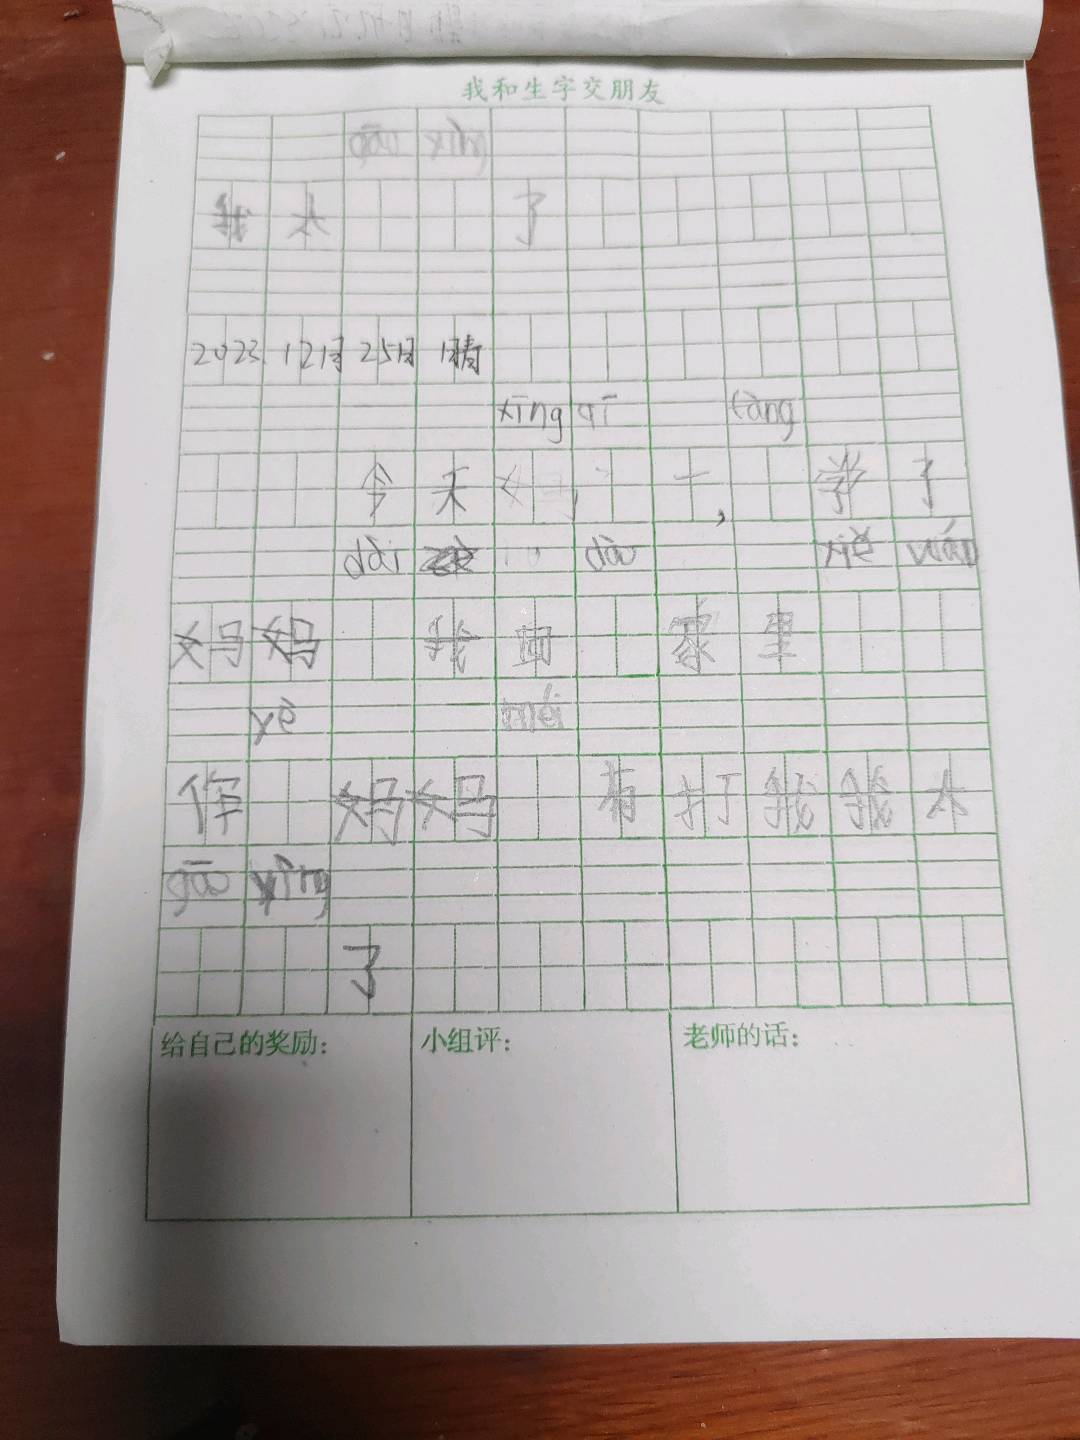 我和生字交朋友
gāo xìng
我太 了
2023. 12月 25日 晴
xīng qī fàng
今天 一, 学了
dài dào xiě yuán
妈妈 我回 家里
yè méi
作 妈妈 有打我我太
gāo xìng
了
给自己的奖励: 小组评: 老师的话: